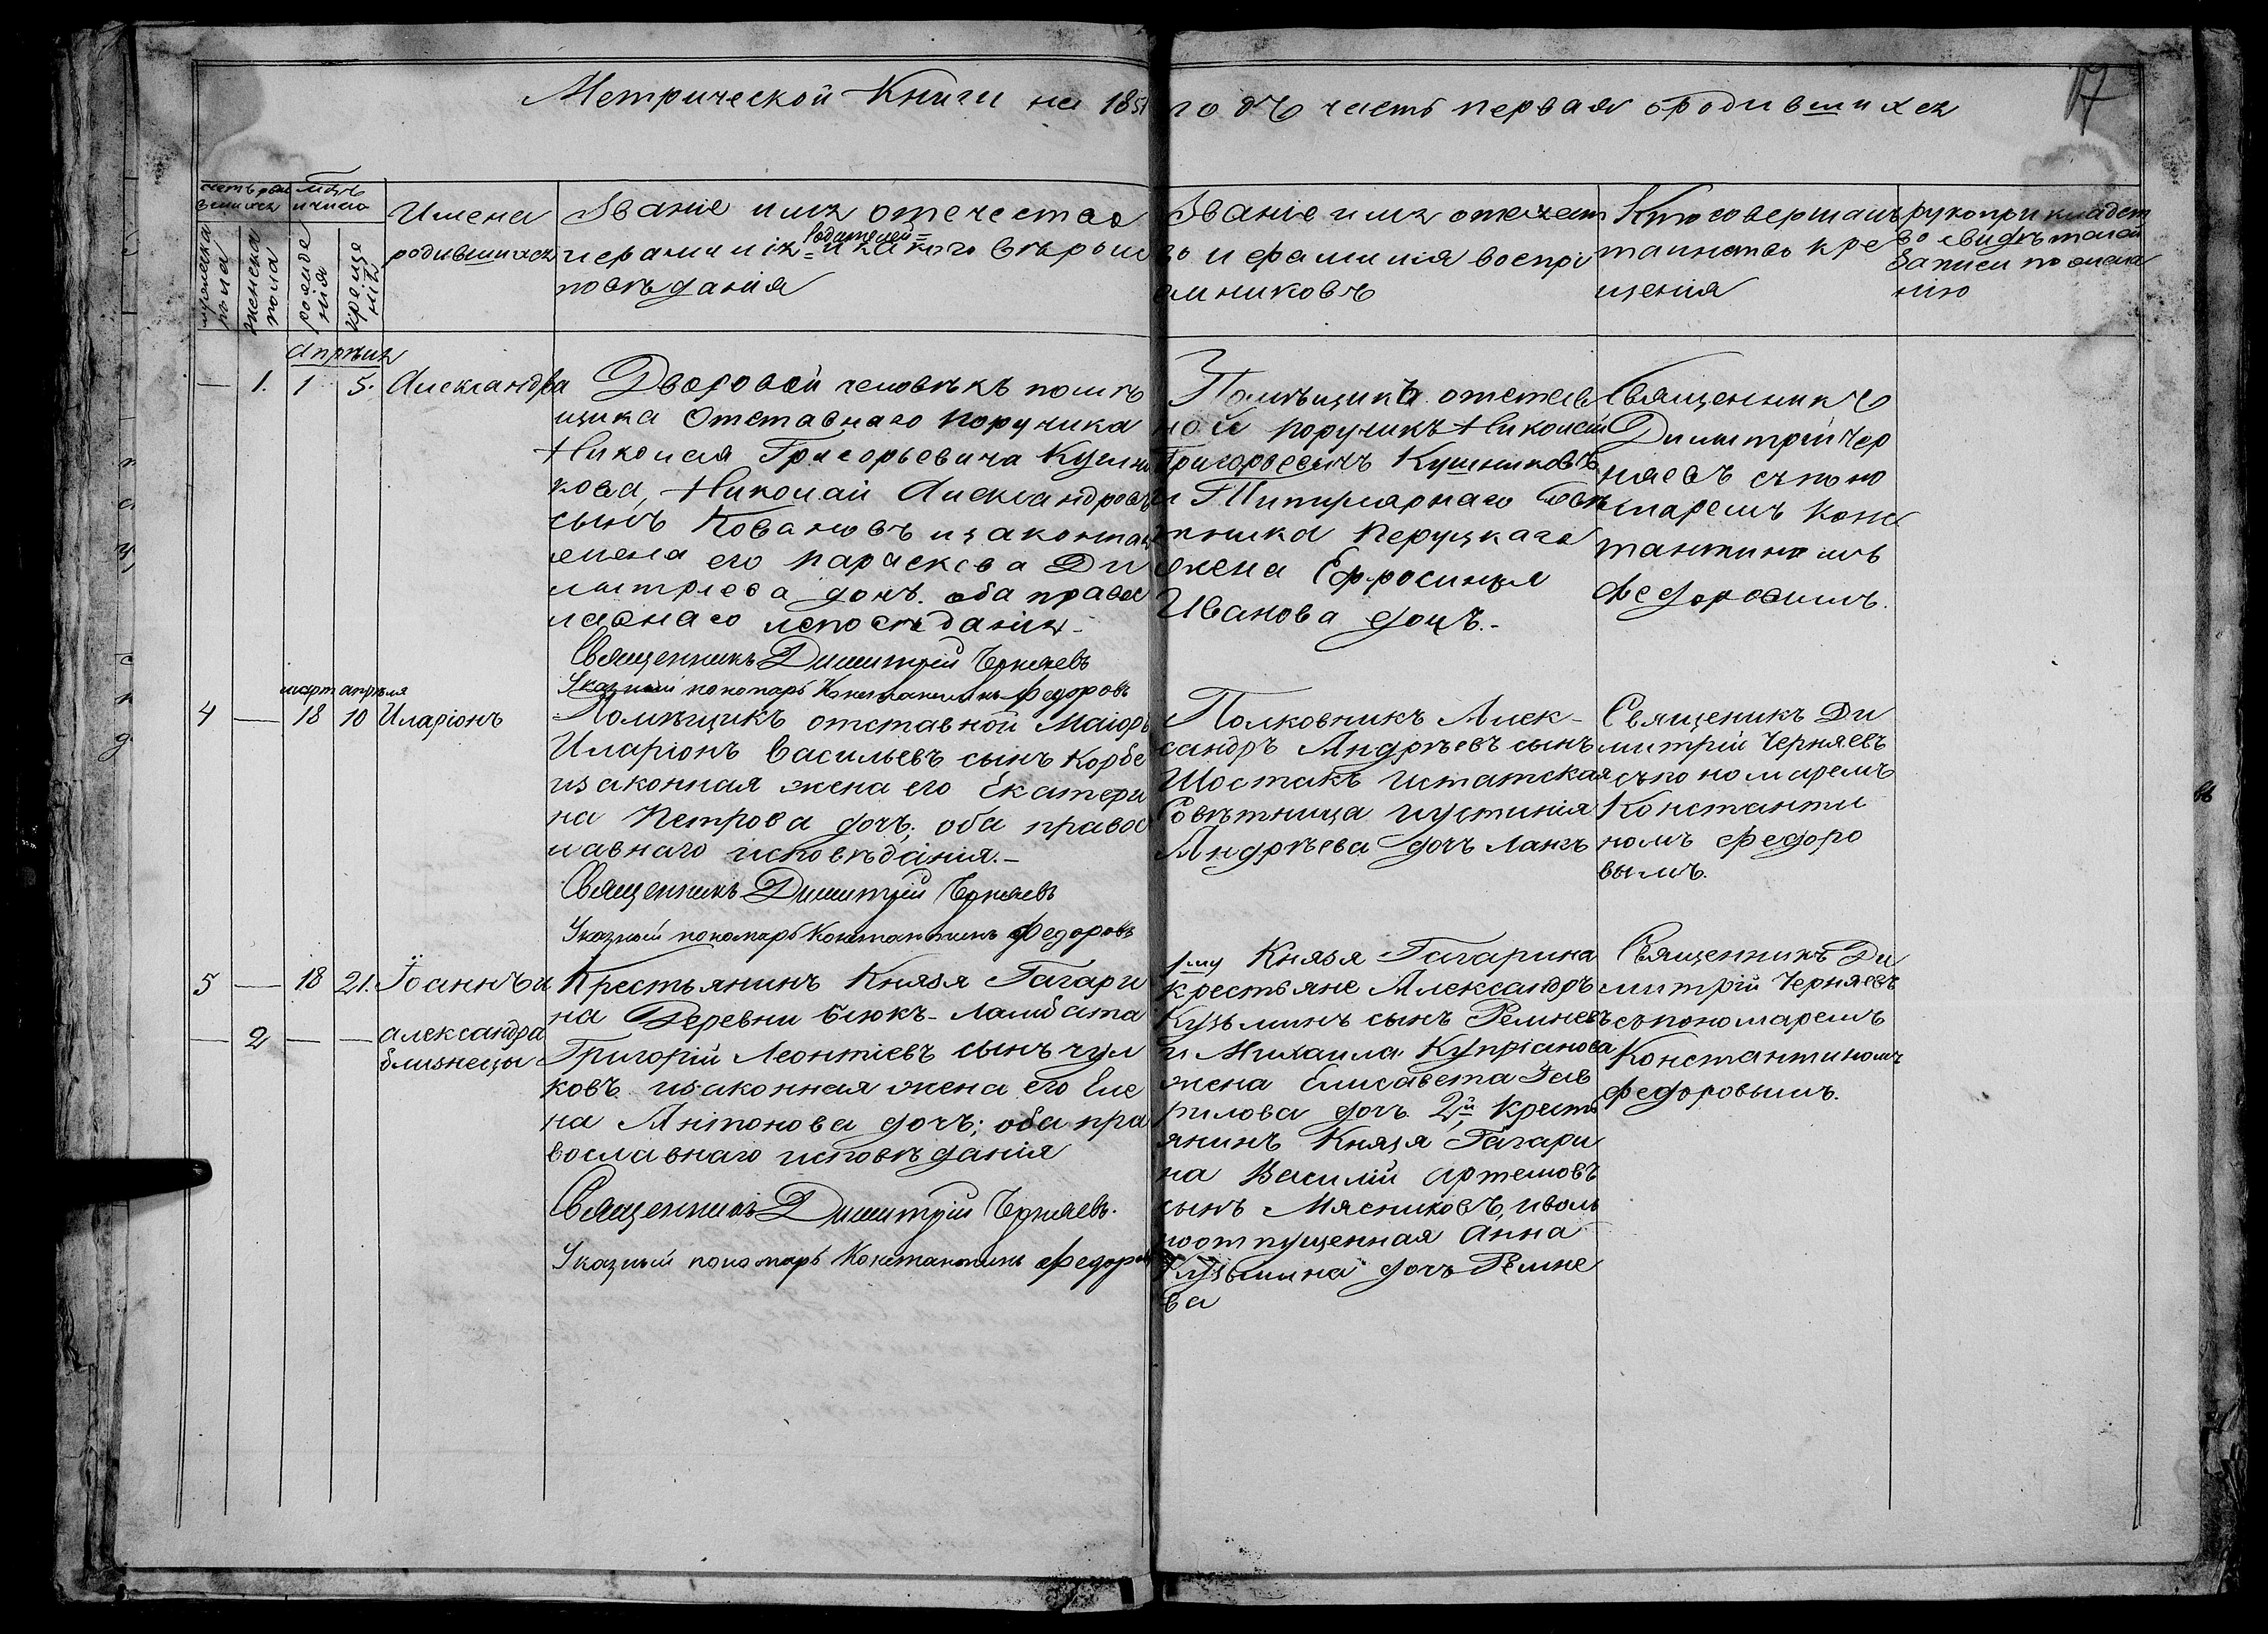 Метрической Книги на 1851 годъ часть первая о родившихся
17
Имена
родившихся
Званіе имя отечество
и фамилія родителей и какого вѣроис
повѣданія
Званіе имя отечест
во и фамилія воспрі
емниковъ
Кто совершалъ
таинство кре
щенія
рукоприкладст
во свидѣтелей
записи по жела
нію
счетъ роди
вшихся
мѣсяцъ
и число
мужеска
пола
женска
пола
рожде
нія
креще
нія
апрѣля
— 1. 1 5. Александра
Дворовой человѣкъ помѣ
щика Отставнаго поручика
Николая Григорьевича Кушни
кова, Николай Александровъ
сынъ Ковановъ и законная
жена его Параскева Ди
митріева дочь. оба правос
лавнаго исповѣданія.
Священникъ Димитрій Черняевъ
Указный пономарь Константинъ Федоровъ
Помѣщикъ отстав
ной поручикъ Николай
Григорьевичъ Кушниковъ
и Титулярнаго Совѣ
тника Перуцкаго
жена Ефросинья
Иванова дочь.-
Священникъ
Димитрій Чер
няевъ съ поно
маремъ Конс
тантиномъ
Федоровымъ.
март апрѣля
4 — 18 10 Иларіонъ
Помѣщикъ отставной Маіоръ
Иларіонъ Васильевъ сынъ Корбе
и законная жена его Екатери
на Петрова дочь; оба правос
лавнаго исповѣданія.-
Священникъ Димитрій Черняевъ
Указный пономарь Константинъ Федоровъ
Полковникъ Алек-
сандръ Андрѣевъ сынъ
Шостакъ и статская
Совѣтница иустинія
Андрѣева дочь Лангъ
Священикъ Ди
митрій Черняевъ
съ пономаремъ
Константи
номъ Федоро
вымъ.
5 — 18 21. Іоаннъ и
— 2 — — александра
близнецы
Крестьянинъ Князя Гагари
на Деревни Біюкъ-Ламбата
Григорій Леонтіевъ сынъ чул
ковъ и законная жена его Еле
на Антонова дочь; оба пра
вославнаго исповѣданія
Священникъ Димитрій Черняевъ.
Указный пономарь Константинъ Федоровъ
1му Князя Гагарина
крестьяне Александръ
Кузьминъ сынъ Ремневъ
и Михаила Купріанова
жена Елисавета Гав
рилова дочь 2й, Кресть
янинъ Князя Гагари
на Василій Артемовъ
сынъ Мясниковъ, и воль
ноотпущенная Анна
Кузьмина дочь Ремне
ва
Священникъ Ди
митрій Черняевъ
съ пономаремъ
Константиномъ
Федоровымъ.